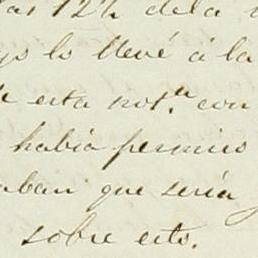 las 12½ dela
lo llevé á la
esta not.ª con
habia permiso
aban que seria
sobre esto.